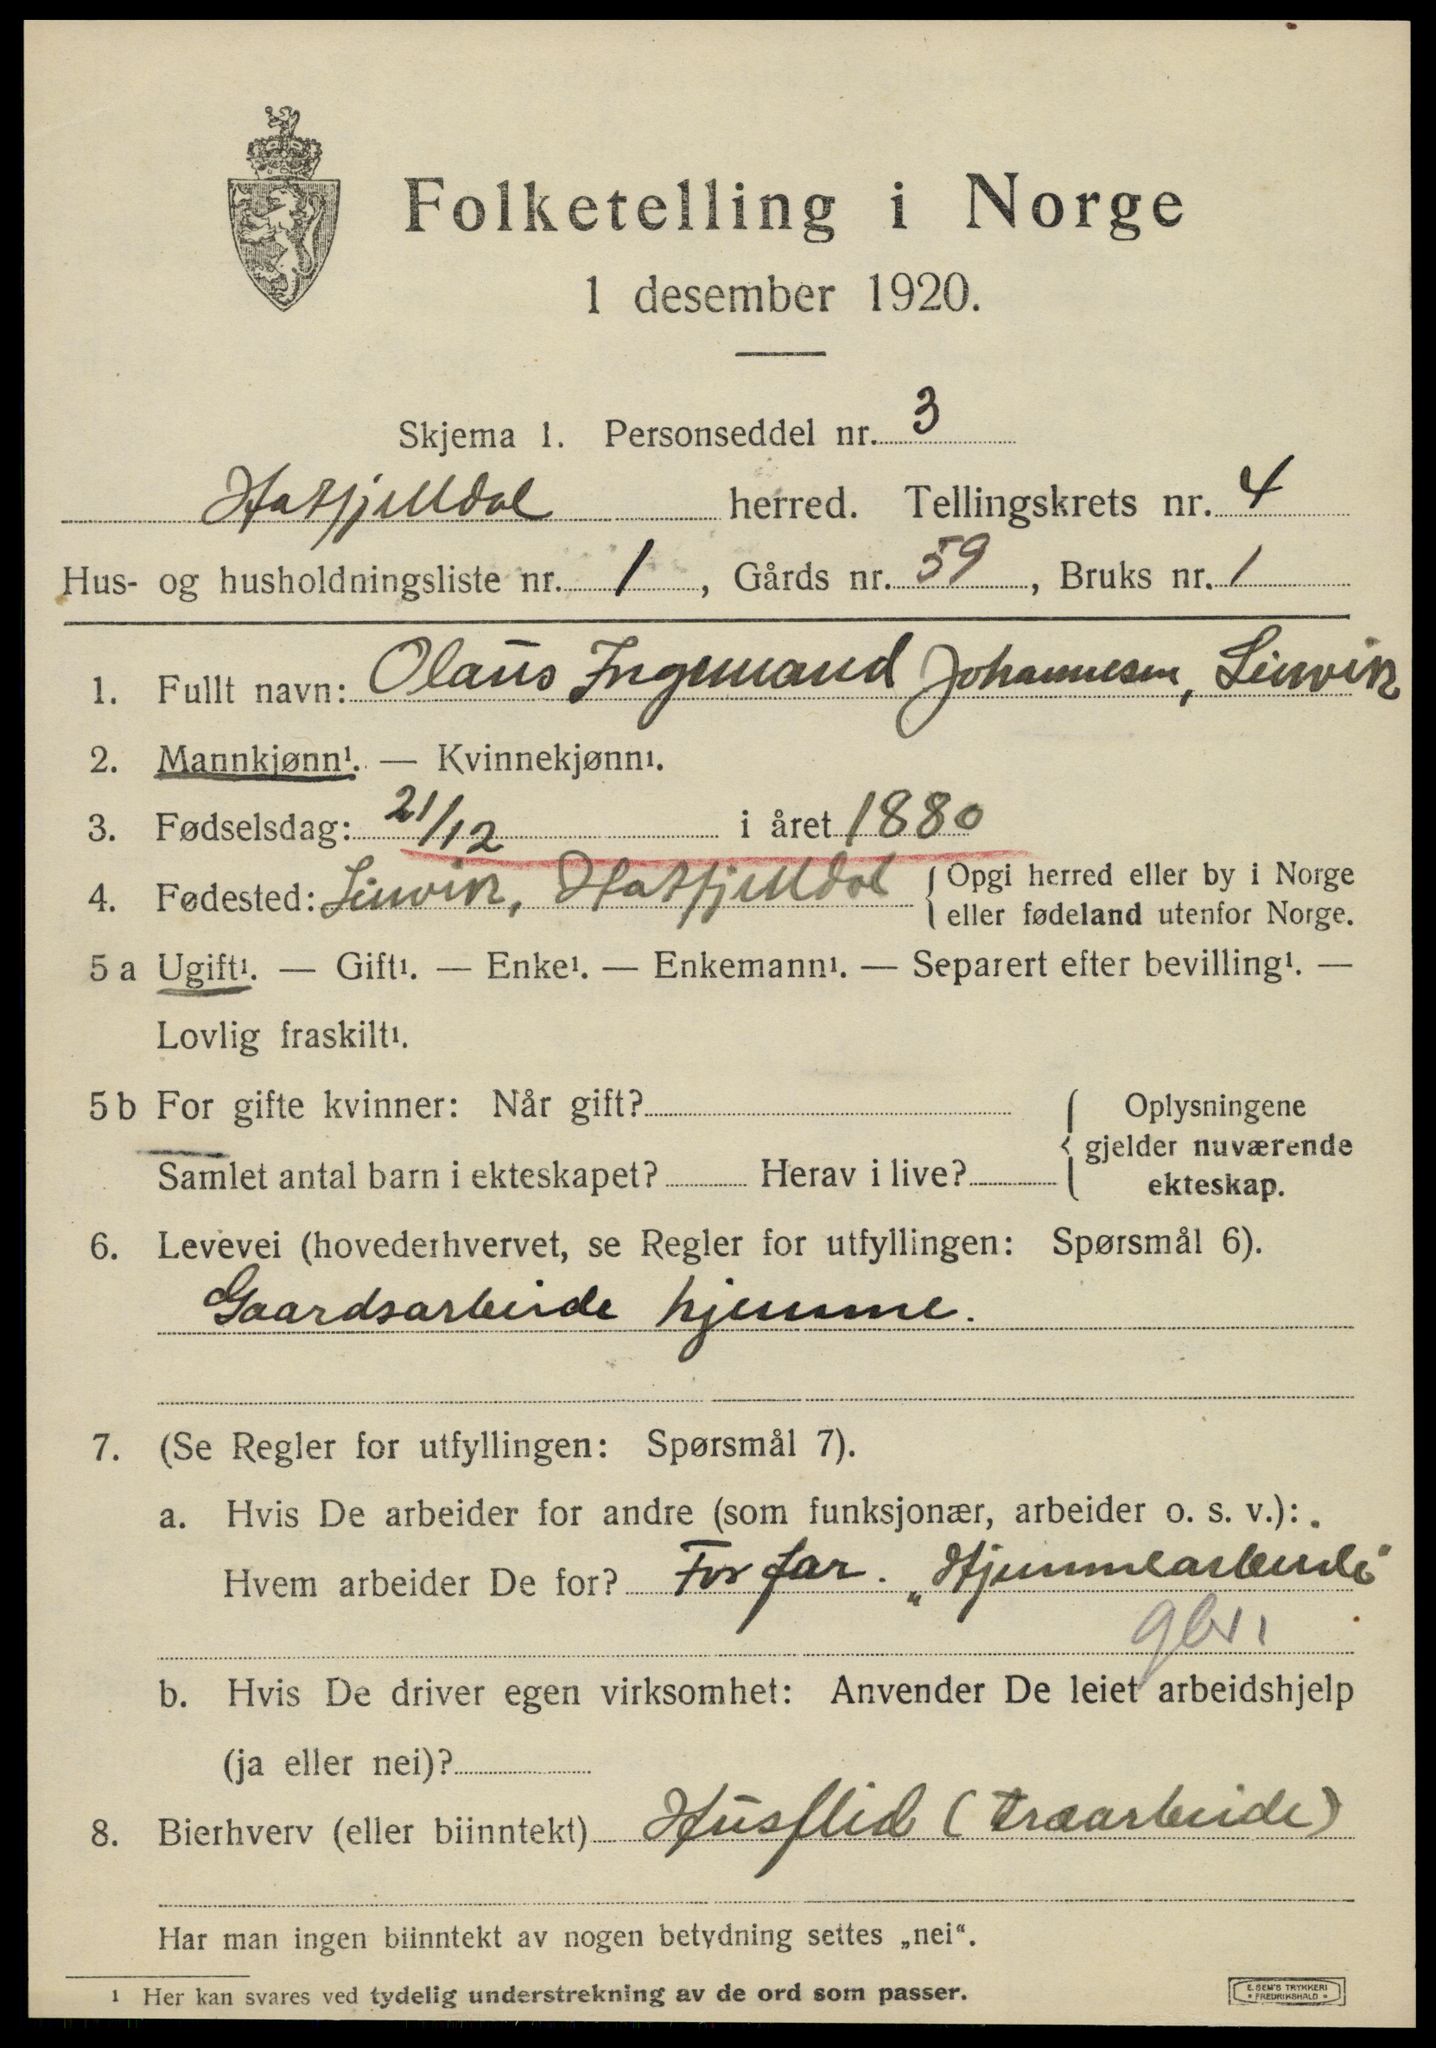 Folketelling i Norge
1 desember 1920.
Skjema 1. Personseddel nr. 3
Hatfjelldal herred. Tellingskrets nr. 4
Hus- og husholdningsliste nr. 1, Gårds nr. 59, Bruks nr. 1
1. Fullt navn: Olaus Ingemand Johannesen, Sivik
2. Mannkjønn¹. — Kvinnekjønn¹.
3. Fødselsdag: 21/12 i året 1880
4. Fødested: Hatfjelldal { Opgi herred eller by i Norge
eller fødeland utenfor Norge.
5 a Ugift¹. — Gift¹. — Enke¹. — Enkemann¹. — Separert efter bevilling¹. —
Lovlig fraskilt¹.
5 b For gifte kvinner: Når gift? { Oplysningene
gjelder nuværende
Samlet antal barn i ekteskapet? Herav i live?
ekteskap.
6. Levevei (hovederhvervet, se Regler for utfyllingen: Spørsmål 6).
Gaardsarbeide hjemme.
7. (Se Regler for utfyllingen: Spørsmål 7).
a. Hvis De arbeider for andre (som funksjonær, arbeider o. s. v.):
Hvem arbeider De for? For far. „Hjemmearbeide"
gbr
b. Hvis De driver egen virksomhet: Anvender De leiet arbeidshjelp
(ja eller nei)?
8. Bierhverv (eller biinntekt) Husflid (træarbeide)
Har man ingen biinntekt av nogen betydning settes „nei“.
¹ Her kan svares ved tydelig understrekning av de ord som passer.
E. SEM'S TRYKKERI
• FREDRIKSHALD •